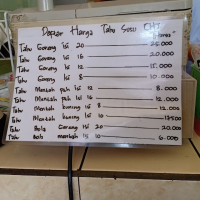 Daftar Harga Tahu Susu
Tahu Goreng Isi 20 25.000
Tahu Goreng Isi 16 20.000
Tahu Goreng Isi 12 15.000
Tahu Goreng Isi 8 10.000
Tahu Mentah putih Isi 10 8.000
Tahu Mentah putih Isi 16 12.000
Tahu Mentah kuning isi 8 12.000
Tahu Mentah kuning isi 10 13500
Tahu Bola Goreng Isi 20 20.000
Tahu bola mentah isi 10 6.000